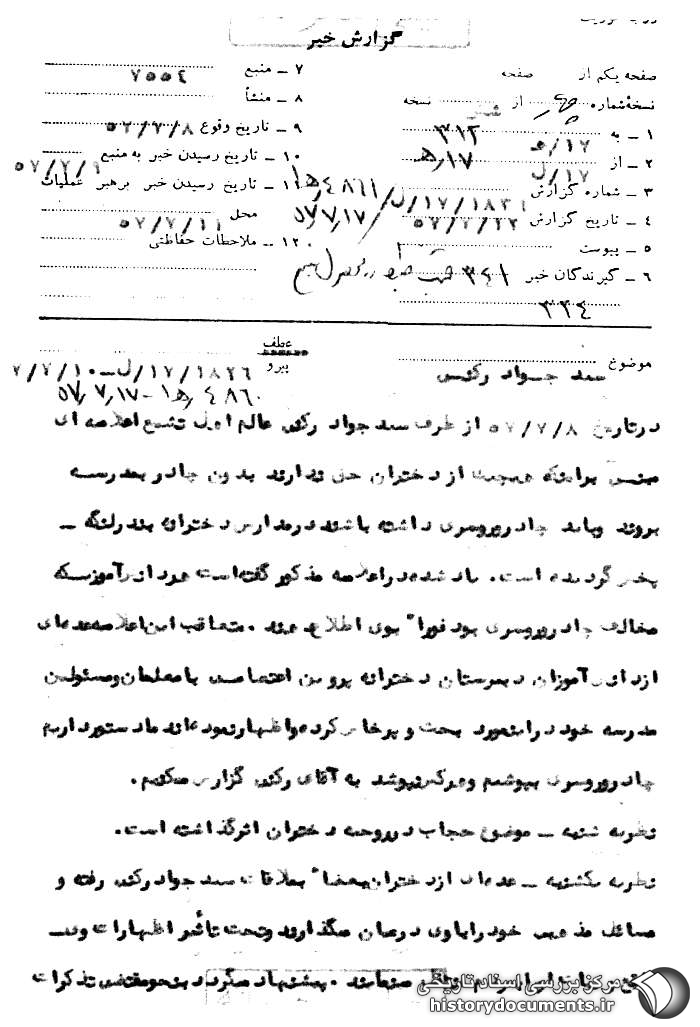 گزارش خبر
صفحه یکم از صفحه
نسخهٔ شماره چهار از شش نسخه
۱ ـ به ۳۱۲
۲ ـ از ۱۷/ﻫ
۱۷/ل
۳ ـ شماره گزارش ۱۷/۱۸۳۶/ل
۴ ـ تاریخ گزارش
۵ ـ پیوست
۶ ـ گیرندگان خبر ۳۴۱
۳۳۴
۷ ـ منبع ۷۵۵۴
۸ ـ منشأ
۹ ـ تاریخ وقوع ۵۷/۷/۸
۱۰ ـ تاریخ رسیدن خبر به منبع ۵۷/۷/۹
۱۱ ـ تاریخ رسیدن خبر برهبر عملیات
محل ۵۷/۷/۱۱
۱۲ ـ ملاحظات حفاظتی
۵۷٫۷٫۱۷
موضوع سید جواد رکنی
عطف
پیرو
۵۷٫۷٫۱۷
درتاریخ ۵۷/۷/۸ از طرف سید جواد رکنی عالم اهل تشیع اعلامیه ای
مبنی براینکه هیچیک از دختران حق ندارند بدون چادر بمدرسه
بروند وباید چادر وروسری داشته باشند درمدارس دخترانه بندرلنگه ـ
پخش گردیده است. یاد شده در اعلامیه مذکور گفته است هر دانش آموزیکه
مخالف چادر وروسری بود فوراً بوی اطلاع دهند. متعاقب این اعلامیه عده ای
از دانش آموزان دبیرستان دخترانه پروین اعتصامی با معلمان ومسئولین
مدرسه خود در اینمورد بحث و پرخاش کرده واظهار نموده اند ما دستور داریم
چادر وروسری بپوشیم وهرکس نپوشد به آقای رکنی گزارش میکنیم.
نظریه شنبه ـ موضوع حجاب در روحیه دختران اثر گذاشته است.
نظریه یکشنبه ـ عده ای از دختران بعضاً بملاقات سید جواد رکنی رفته و
مسائل مذهبی خود را باوی درمیان میگذارند وتحت تأثیر اظهارات وی
پیشنهاد میگردد بنحو مقتضی تذکرات
مرکز بررسی اسناد تاریخی
historydocuments.ir